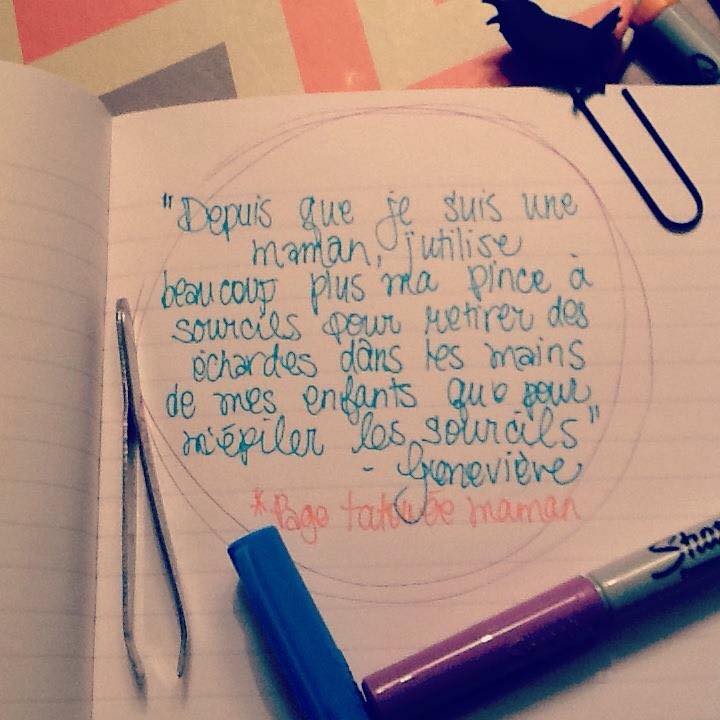 "Depuis que je suis une
maman, j'utilise
beaucoup plus ma pince à
sourcils pour retirer des
échardes dans les mains
de mes enfants que pour
m'épiler les sourcils"
- Geneviève
*Page tatouée maman